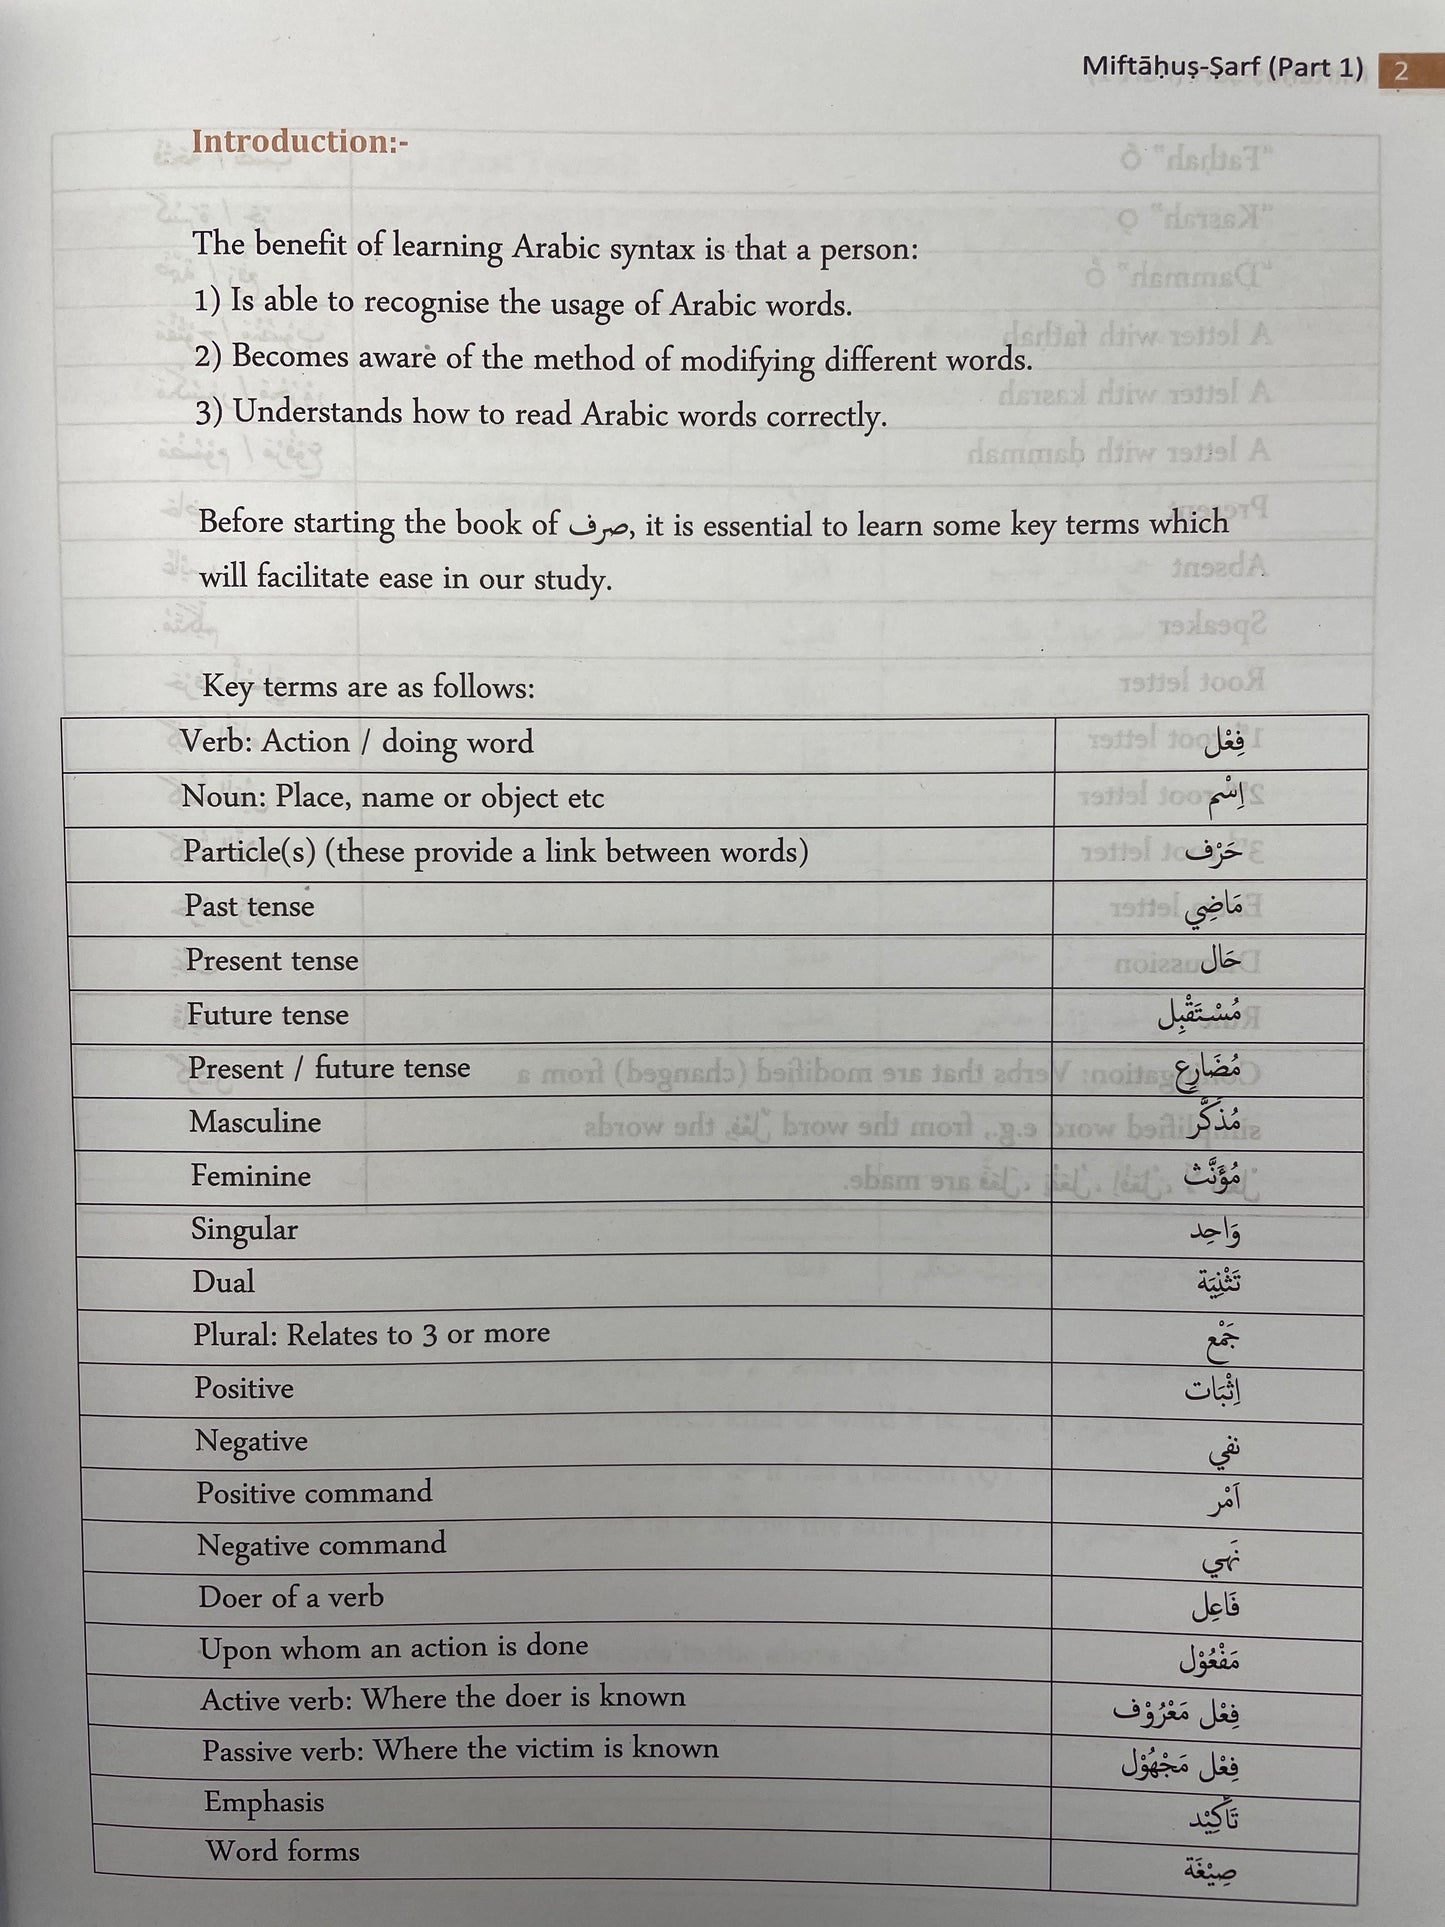 Miftāḥuṣ-Ṣarf (Part 1) 2
Introduction:-
The benefit of learning Arabic syntax is that a person:
1) Is able to recognise the usage of Arabic words.
2) Becomes aware of the method of modifying different words.
3) Understands how to read Arabic words correctly.
Before starting the book of صرف, it is essential to learn some key terms which
will facilitate ease in our study.
Key terms are as follows:
Verb: Action / doing word فِعْل
Noun: Place, name or object etc اِسْم
Particle(s) (these provide a link between words) حَرْف
Past tense مَاضِي
Present tense حَال
Future tense مُسْتَقْبِل
Present / future tense مُضَارِع
Masculine مُذَكَّر
Feminine مُؤَنَّث
Singular وَاحِد
Dual تَثْنِيَة
Plural: Relates to 3 or more جَمْع
Positive اِثْبَات
Negative نفي
Positive command اَمْر
Negative command نَهي
Doer of a verb فَاعِل
Upon whom an action is done مَفْعُوْل
Active verb: Where the doer is known فِعْل مَعْرُوْف
Passive verb: Where the victim is known فِعْل مَجْهُوْل
Emphasis تَاْكِيْد
Word forms صِيْغَة